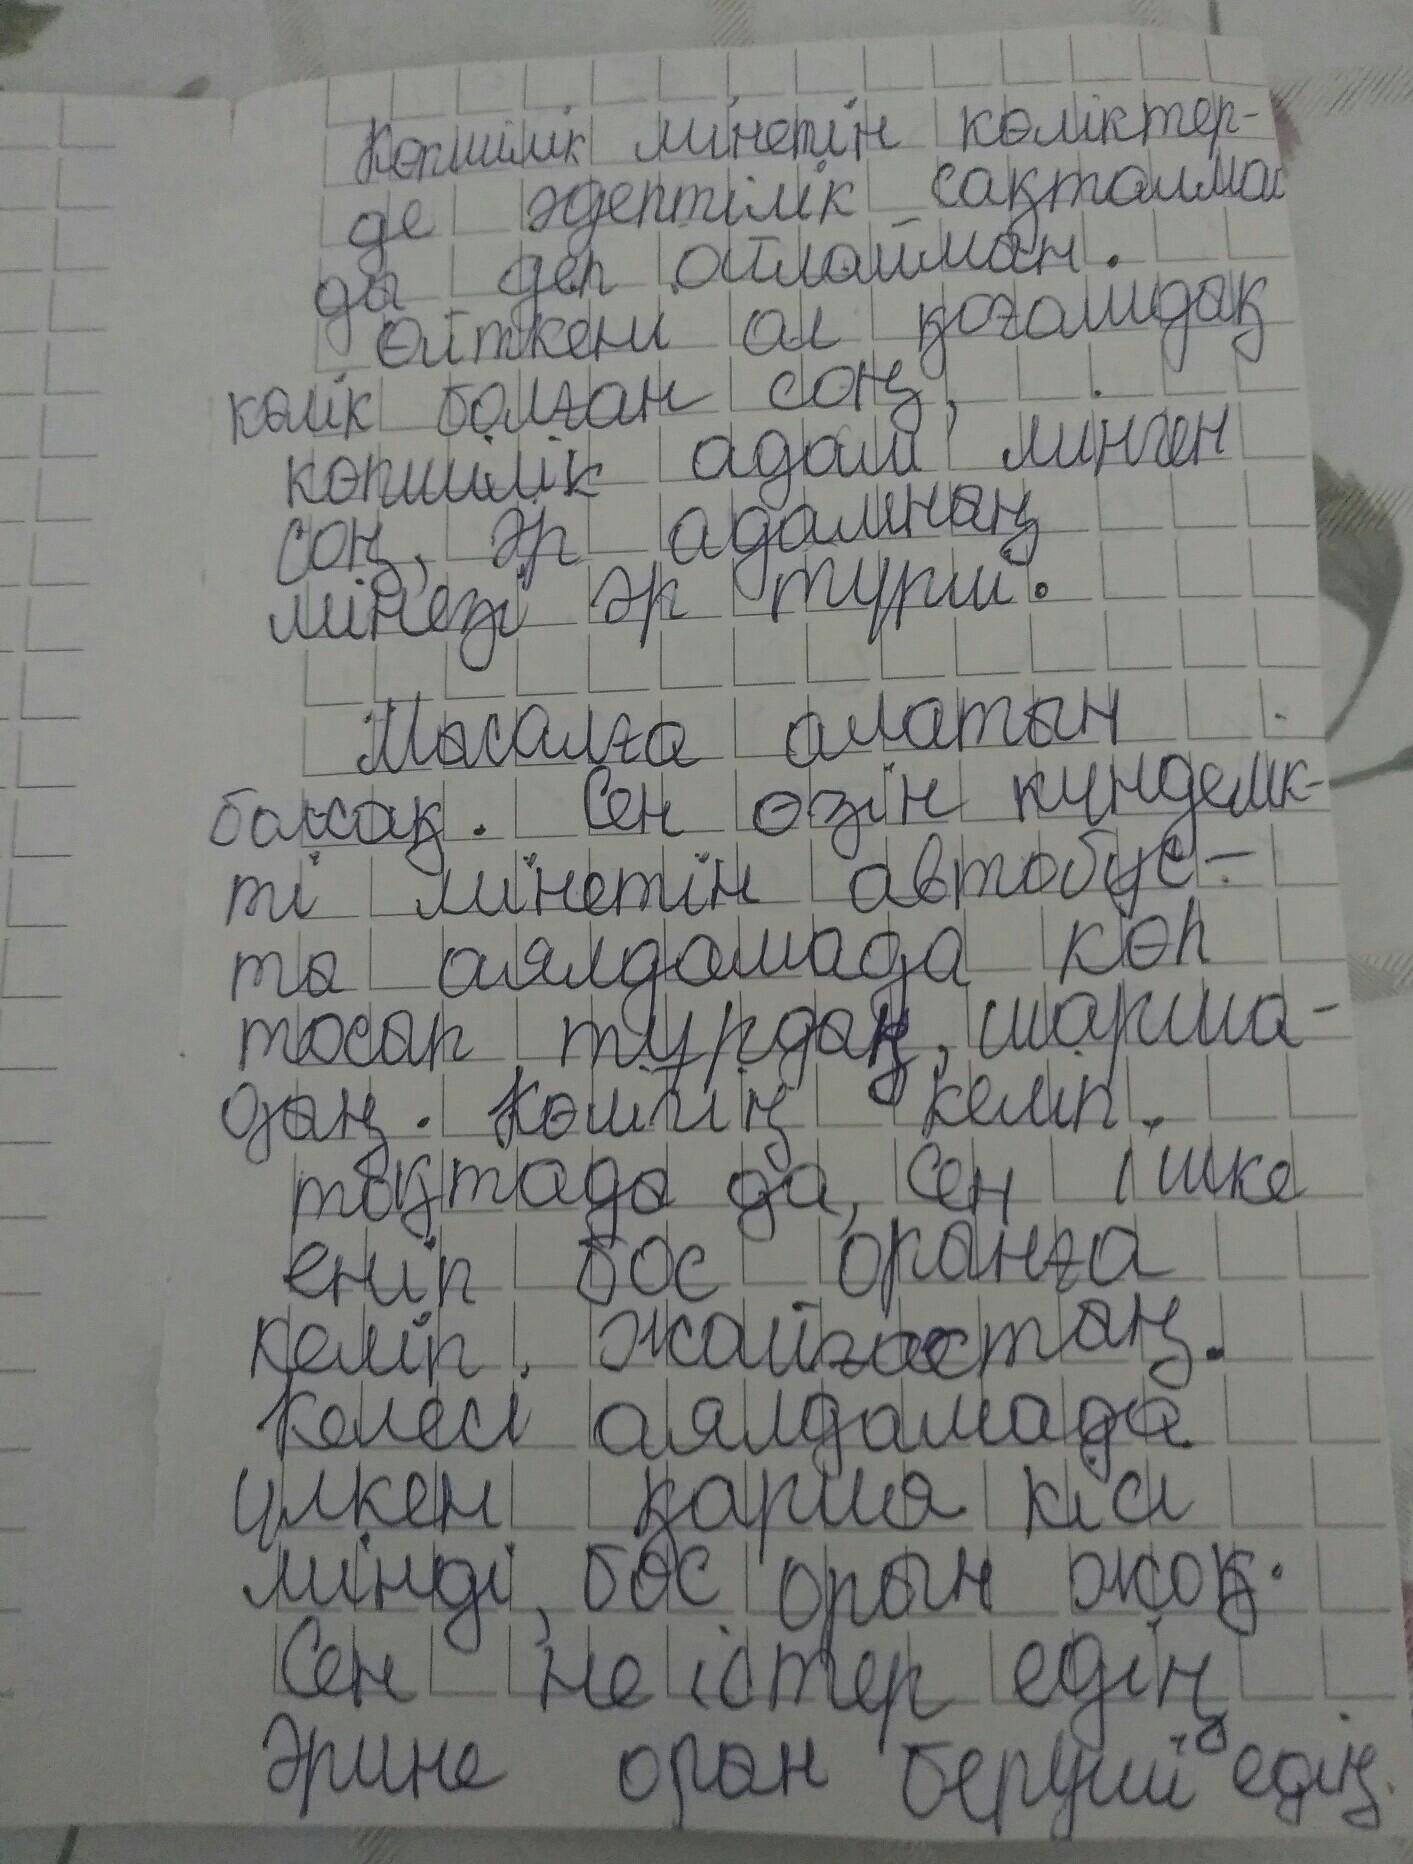 Көпшілік мінетін көліктер-
де әдептілік сақталмай
ды деп ойлаймын.
Өйткені ол қоғамдық
көлік болған соң,
көпшілік адам мінген
соң, әр адамның
мінезі әр түрлі.
Мысалға алатын
болсақ. Сен өзін күнделік-
ті мінетін автобус-
ты аялдамада көп
тосып тұрдың, шарша-
дың. Көлігің келіп.
тоқтады да, сен ішке
еніп бос орынға
келіп, жайғастың.
Келесі аялдамада
үлкен қария кісі
мінді, бос орын жоқ.
Сен не істер едің
Әрине орын беруші едің.